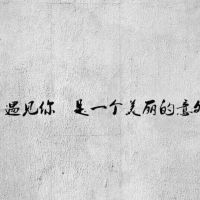 遇见你 是一个美丽的意外